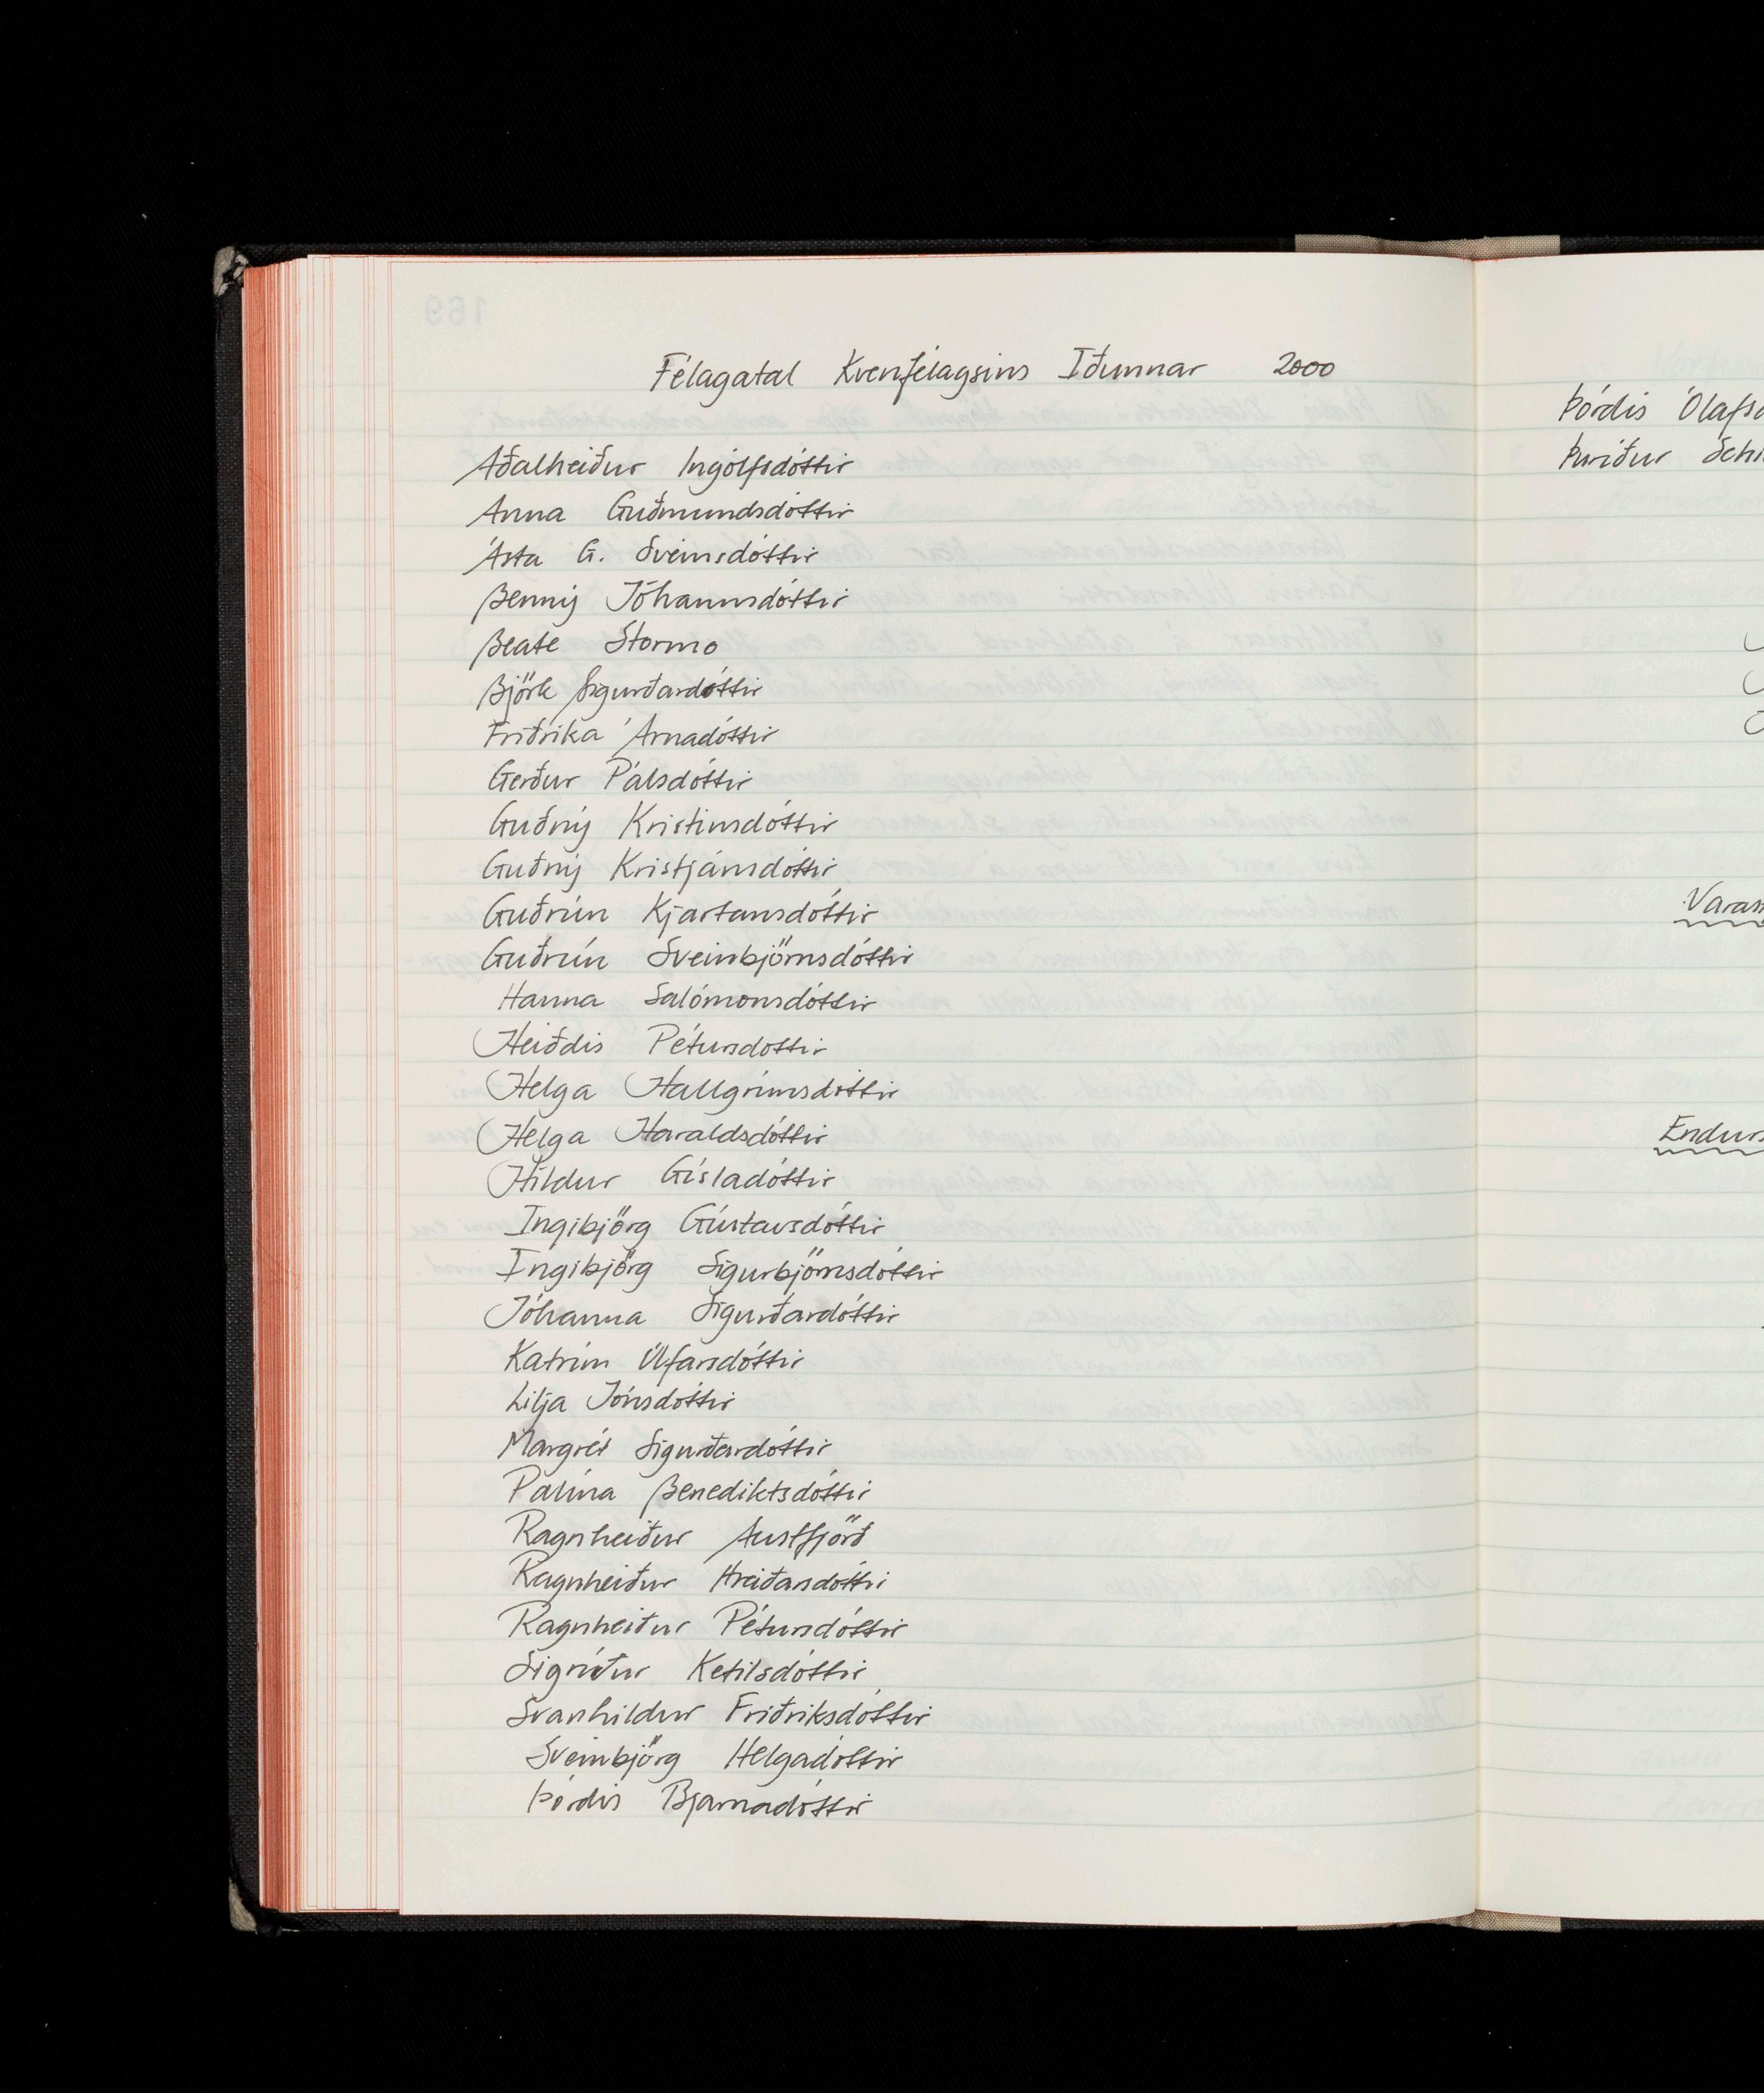 Félagatal Kvenfélagsins Iðunnar 2000
Aðalheiður Ingólfsdóttir
Anna Guðmundsdóttir
Ásta G. Sveinsdóttir
Benný Jóhannsdóttir
Beate Stormo
Björk Sigurðardóttir
Friðrika Árnadóttir
Gerður Pálsdóttir
Guðný Kristinsdóttir
Guðný Kristjánsdóttir
Guðrún Kjartansdóttir
Guðrún Sveinbjörnsdóttir
Hanna Salómonsdóttir
Heiðdís Pétursdóttir
Helga Hallgrímsdóttir
Helga Haraldsdóttir
Hildur Gísladóttir
Ingibjörg Gústavsdóttir
Ingibjörg Sigurbjörnsdóttir
Jóhanna Sigurðardóttir
Katrín Úlfarsdóttir
Lilja Jónsdóttir
Margrét Sigurðardóttir
Pálína Benediktsdóttir
Ragnheiður Austfjörð
Ragnheiður Hreiðarsdóttir
Ragnheiður Pétursdóttir
Sigríður Ketilsdóttir
Svanhildur Friðriksdóttir
Sveinbjörg Helgadóttir
Þórdís Bjarnadóttir
Þórdís Ólafsd
Þuríður Sch
Varam
Endurs